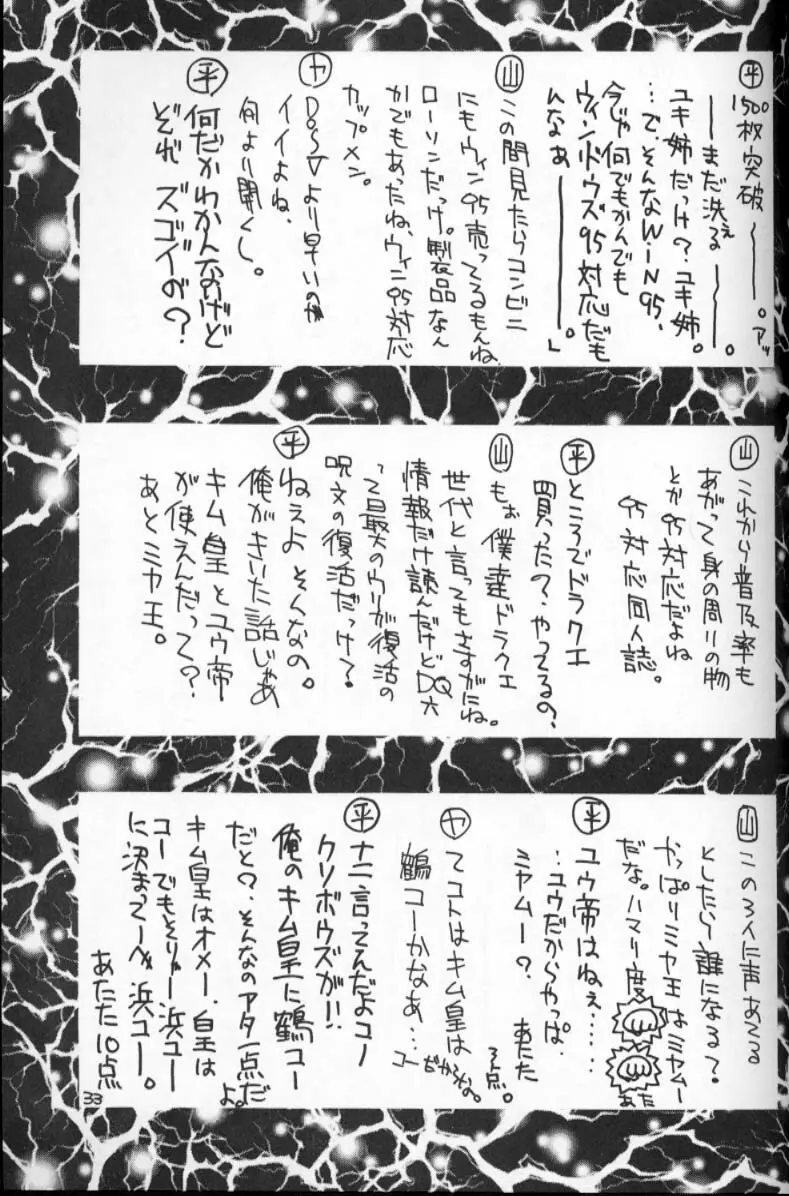 ㊥平 1500枚突破〜〜〜。アッ
――まだ洗るぇ――。
ユキ姉だっけ?ユキ姉。
…で、そんなWiN95、
今じゃ何でもかんでも
ウィンドウズ95対応だも
んなぁ――――。」
山 この間見たらコンビニ
にもウィン95売ってるもんね、
ローソンだっけ。製品なん
かでもあったね、ウィン95対応
カップメン。
ヤ DOS/Vより早いのが
イイよね、
何より聞くし。
平 何だかわかんないけど
ぞれ ズゴイが?
山 これから普及率も
あがって身の周りの物
とか95対応だよね
95対応同人誌。
平 ところでドラクエ
買ったの?やってるの?
山 もぉ僕達ドラクエ
世代と言ってもさすがにね。
情報だけ読んだけどDQ六
って最大のウリが復活の
呪文の復活だっけ?
平 ねぇよそんなの。
俺がきいた話じゃあ
キム皇とユウ帝
が使えんだって?
あとミヤ王。
山 この3人に声あてる
としたら誰になる?
やっぱりミヤ王はミヤムー
だな。ハマり度
あた
平 ユウ帝はねぇ……
…ユウだからやっぱ
ミヤムー? あたた
3点。
ヤ てコトはキム皇は
鶴コーかなあ…
コーだからね。
平 ナニ言ってんだよコノ
クソボウズが!!
俺のキム皇に鶴コー
だと?そんなのアター点だ
よ。
キム皇はオメー、皇は
コーでもそりゃー浜コー
に決まってーべ。浜コー。
あたた10点
33